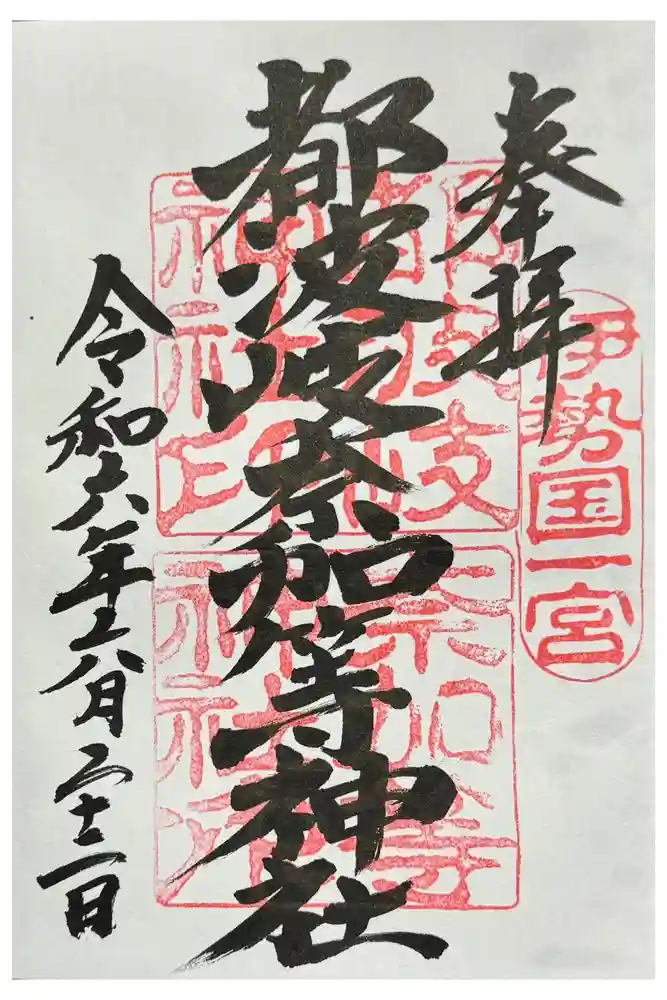 奉拝
伊勢国一宮
都波岐奈加等神社
令和六年六月二十 日